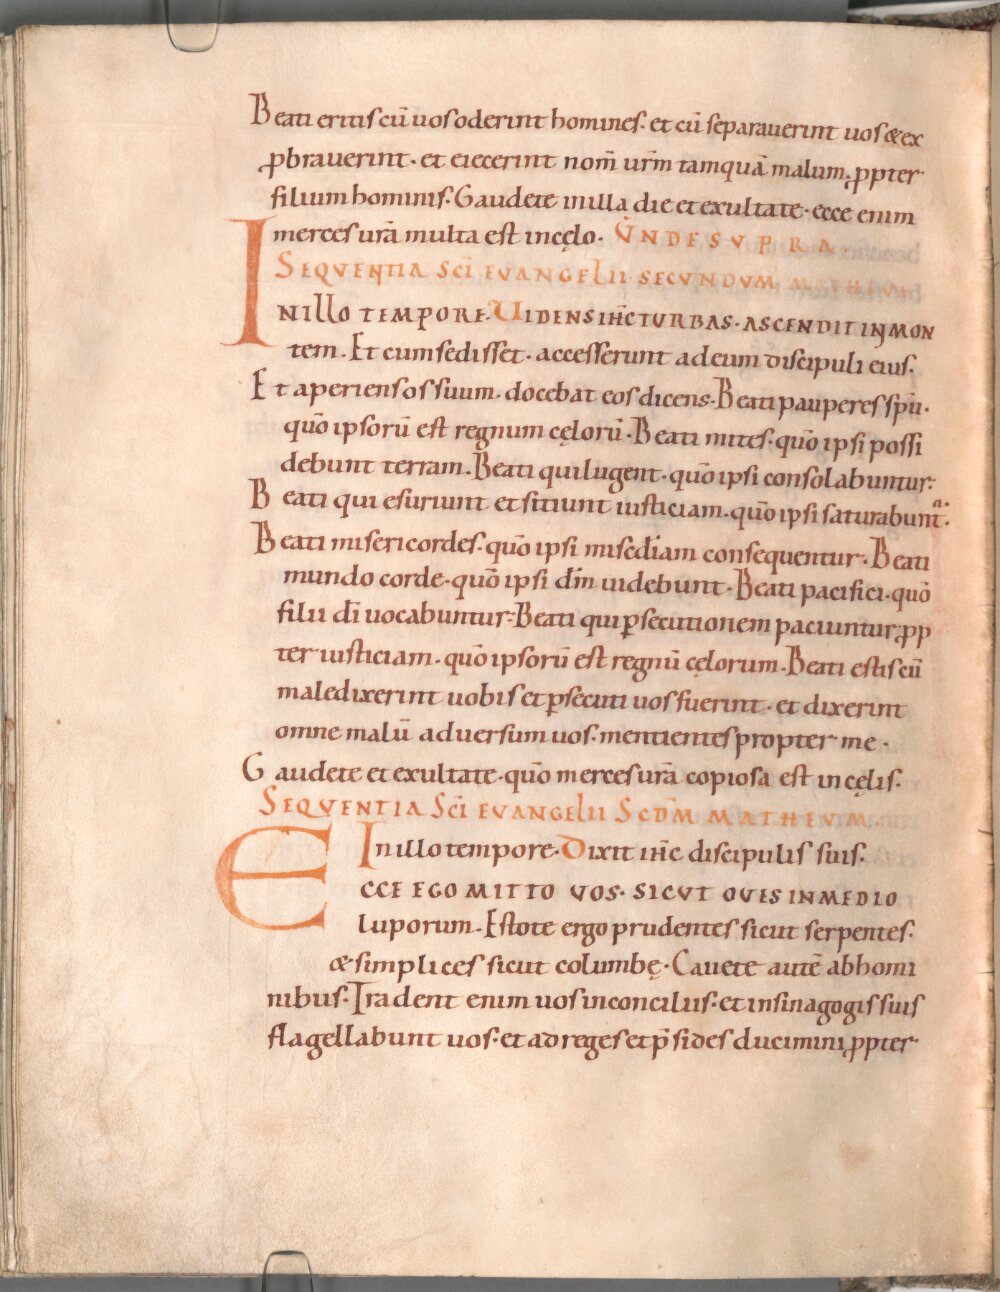 Beati eritis cū uos oderint homines· et cū separauerint uos & ex
ꝓbrauerint· et eiecerint nom̄ ur̄m tamquā malum· ꝓpter
filium hominis· Gaudete in illa die et exultate· ecce enim
merces ur̄a multa est in cęlo· UNDE SUPRA·
SEQUENTIA SCĪ EUANGELII SECUNDUM MATHEUM
IN ILLO TEMPORE· UIDENS IHC̄ TURBAS· ASCENDIT IN MON
tem· Et cum sedisset· accesserunt ad eum discipuli eius·
Et aperiens os suum· docebat eos dicens· Beati pauperes spū·
quō ipsorū est regnum cęlorū· Beati mites· quō ipsi possi
debunt terram· Beati qui lugent· quō ipsi consolabuntur·
Beati qui esuriunt et sitiunt iusticiam· quō ipsi saturabunt᷑·
Beati misericordes· quō ipsi misēdiam consequentur· Beati
mundo corde· quō ipsi dm̄ uidebunt· Beati pacifici· quō
filii dī uocabuntur· Beati qui ꝑsecutionem paciuntur ꝓp
ter iusticiam· quō ipsorū est regnū cęlorum· Beati estis cū
maledixerint uobis et ꝑsecuti uos fuerint· et dixerint
omne malū aduersum uos· mentientes propter me·
Gaudete et exultate· quō merces ur̄a copiosa est in cęlis·
SEQUENTIA SCĪ EUANGELII SCDM̄ MATHEUM·
In illo tempore· Dixit ihc̄ discipulis suis·
ECCE EGO MITTO UOS· SICUT OUES IN MEDIO
luporum· Estote ergo prudentes sicut serpentes·
& simplices sicut columbę· Cauete autē ab homi
nibus· Tradent enim uos in conciliis· et in sinagogis suis
flagellabunt uos· et ad reges et p̄sides ducimini ꝓpter